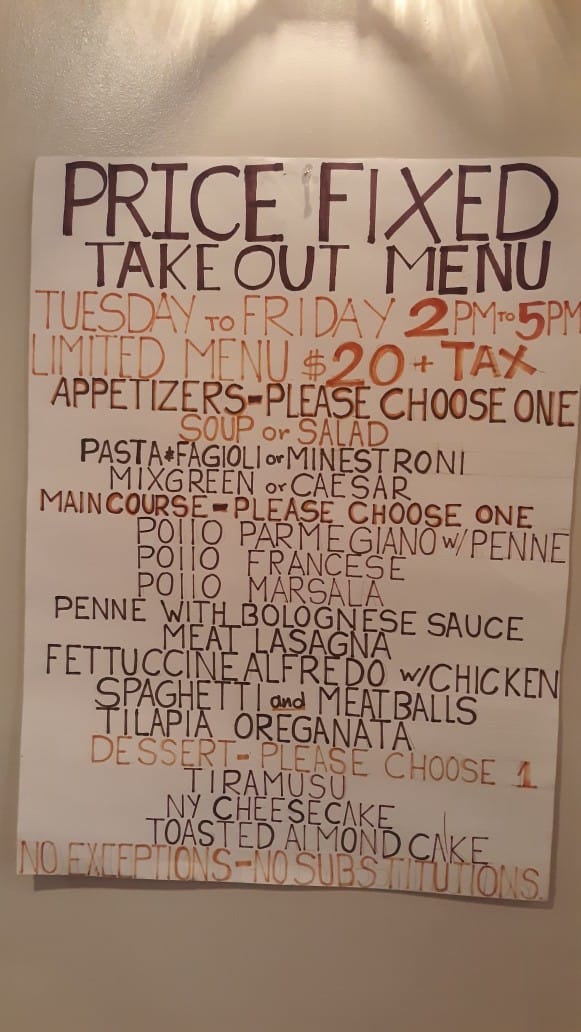 PRICE FIXED
TAKE OUT MENU
TUESDAY TO FRIDAY 2PM TO 5PM
LIMITED MENU $20 + TAX
APPETIZERS-PLEASE CHOOSE ONE
SOUP or SALAD
PASTA*FAGIOLI or MINESTRONI
MIXGREEN or CAESAR
MAIN COURSE-PLEASE CHOOSE ONE
POllO PARMEGIANO w/PENNE
POllO FRANCESE
POllO MARSALA
PENNE WITH BOLOGNESE SAUCE
MEAT LASAGNA
FETTUCCINE ALFREDO w/CHICKEN
SPAGHETTI and MEATBALLS
TILAPIA OREGANATA
DESSERT-PLEASE CHOOSE 1
TIRAMUSU
NY CHEESECAKE
TOASTED AlMOND CAKE
NO EXCEPTIONS-NO SUBSTITUTIONS.